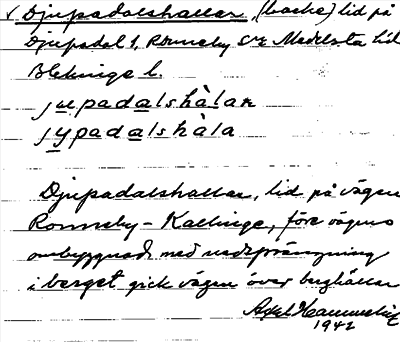 √ Djupadalshallar, (backe) lid på
Djupadal 1, Ronneby sn Medelsta hd
Blekinge l.
ju̲padalshàlar
jy̲pada̲lshàla
Djupadalshallar, lid på vägen
Ronneby – Kallinge, före vägens
ombyggnad med nedsprängning
i berget gick vägen över berghällar
Axel
1942